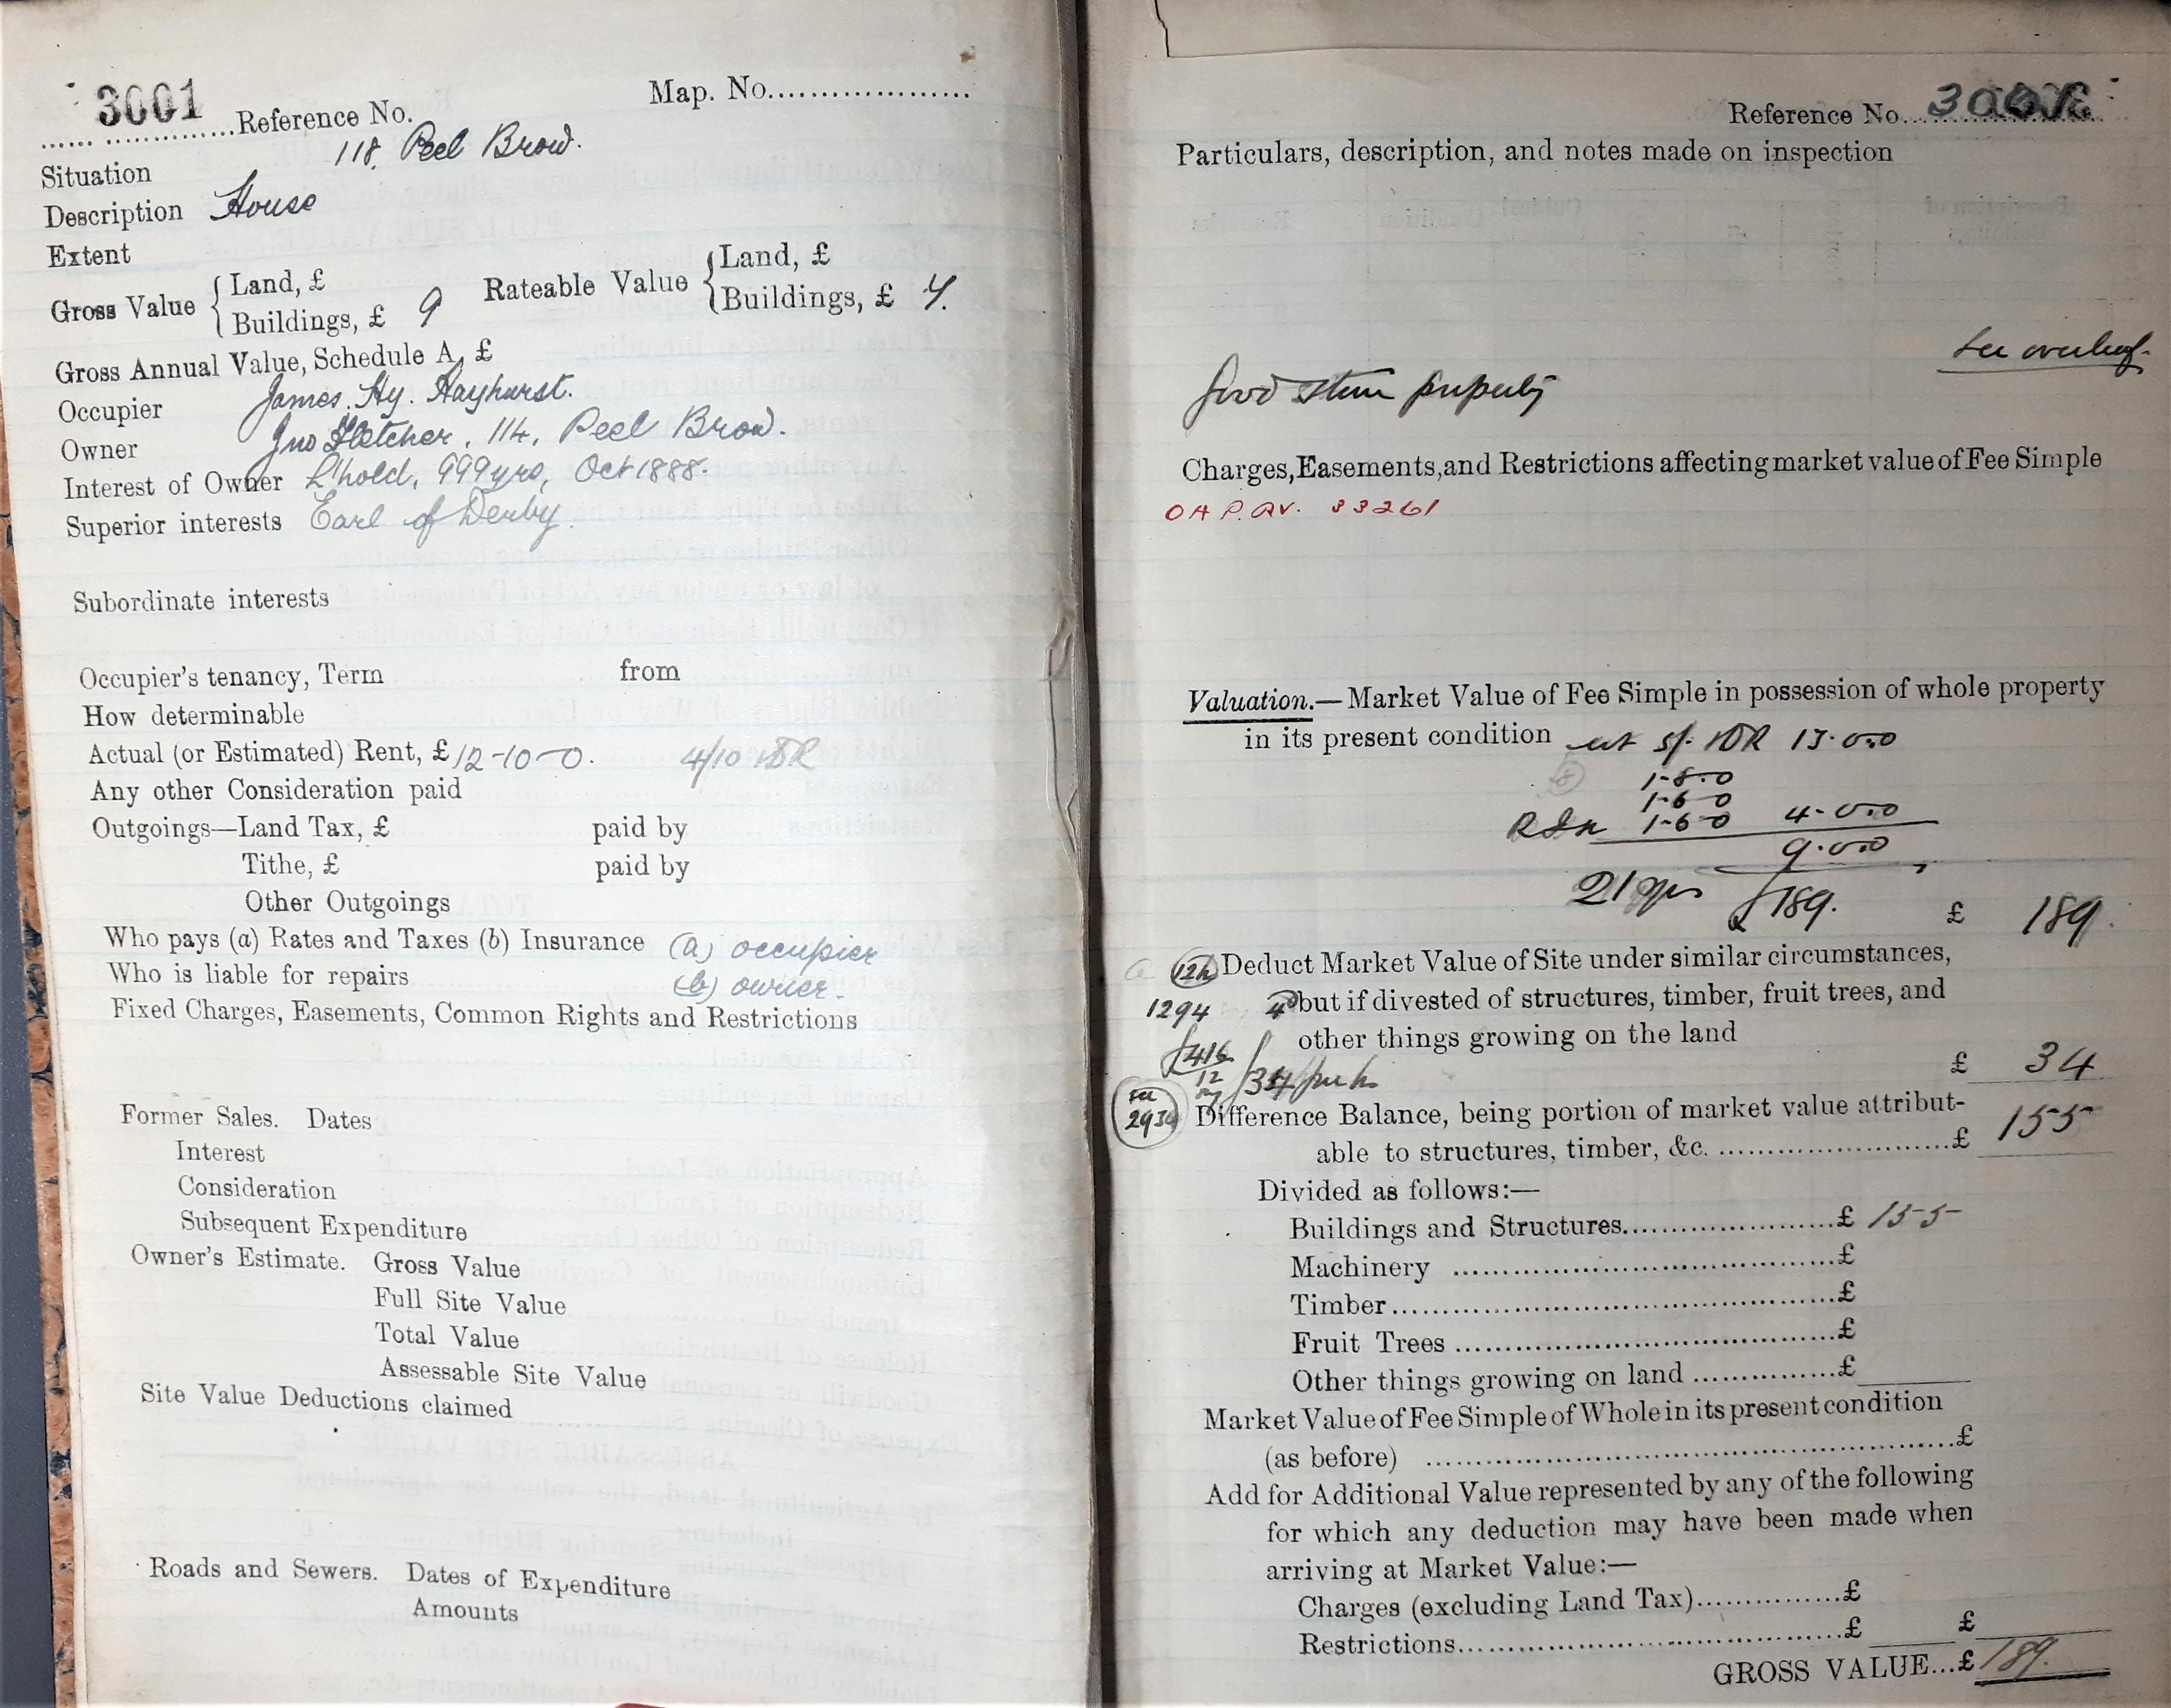 3001
Reference No.
Map. No.
Situation 118, Peel Brow.
Description House
Extent
Gross Value { Land, £
Buildings, £ 9
Rateable Value { Land, £
Buildings, £ 7.
Gross Annual Value, Schedule A, £
Occupier James. Hy. Hayhurst.
Owner Jno Fletcher, 114, Peel Brow.
Interest of Owner L'hold, 999yrs, Oct 1888.
Superior interests Earl of Derby.
Subordinate interests
Occupier's tenancy, Term from
How determinable
Actual (or Estimated) Rent, £12-10-0. 4/10
Any other Consideration paid
Outgoings—Land Tax, £ paid by
Tithe, £ paid by
Other Outgoings
Who pays (a) Rates and Taxes (b) Insurance (a) occupier
Who is liable for repairs (b) owner.
Fixed Charges, Easements, Common Rights and Restrictions
Former Sales. Dates
Interest
Consideration
Subsequent Expenditure
Owner's Estimate. Gross Value
Full Site Value
Total Value
Assessable Site Value
Site Value Deductions claimed
Roads and Sewers. Dates of Expenditure
Amounts
Reference No.
Particulars, description, and notes made on inspection
See overleaf.
Good stone property
Charges, Easements, and Restrictions affecting market value of Fee Simple
33261
Valuation.—Market Value of Fee Simple in possession of whole property
in its present condition 5/. 13.0.0
1-8-0
1-6-0
1-6-0 4.0.0
9.0.0
21 yrs £189.
£ 189.
Deduct Market Value of Site under similar circumstances,
1294 but if divested of structures, timber, fruit trees, and
other things growing on the land
£416
12
£ 34
Difference Balance, being portion of market value attribut-
able to structures, timber, &c. £ 155
Divided as follows:—
Buildings and Structures £ 155
Machinery £
Timber £
Fruit Trees £
Other things growing on land £
Market Value of Fee Simple of Whole in its present condition
(as before) £
Add for Additional Value represented by any of the following
for which any deduction may have been made when
arriving at Market Value:—
Charges (excluding Land Tax) £
Restrictions £ £
GROSS VALUE...£ 189.